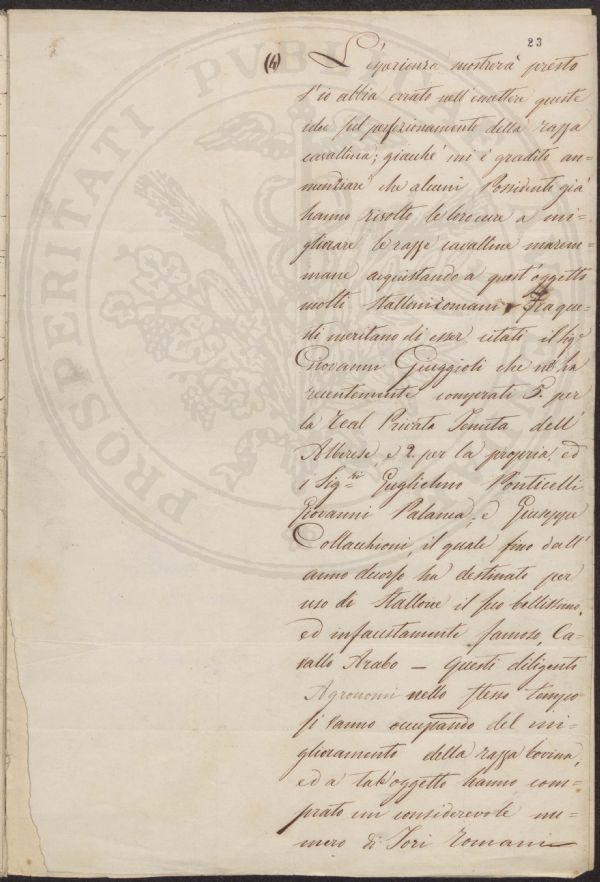 23
(4) L'esperienza mostrerà presto
s'io abbia errato nell'emettere queste
idee sul perfezionamento della razza
cavallina; giacchè mi è gradito am=
mentrare che alcuni Possidenti già
hanno risolto le loro cure a mi=
gliorare le razze cavalline marem=
mane acquistando a quest'oggetto
molti stalloni romani. Fra que=
sti meritano di esser citati il Sigr
Giovanni Giuggioli che ne ha
recentemente comprati 5. per
la Real Privata Tenuta dell'
Alberese, e 2. per la propria, ed
i Sigri Guglielmo Ponticelli
Giovanni Palanca, e Giuseppe
Collacchioni, il quale fino dall'
anno decorso ha destinato per
uso di Stallone il suo bellissimo,
ed infaustamente famoso, Ca=
vallo Arabo — Questi diligenti
Agronomi nello stesso tempo
si vanno occupando del mi=
glioramento della razza bovina,
ed a tal'oggetto hanno com=
prato un considerevole nu=
mero di Tori romani
PROSPERITATI PUBLI